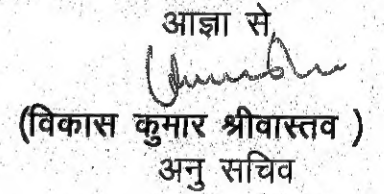 आज्ञा से,
(विकास कुमार श्रीवास्तव )
अनु सचिव